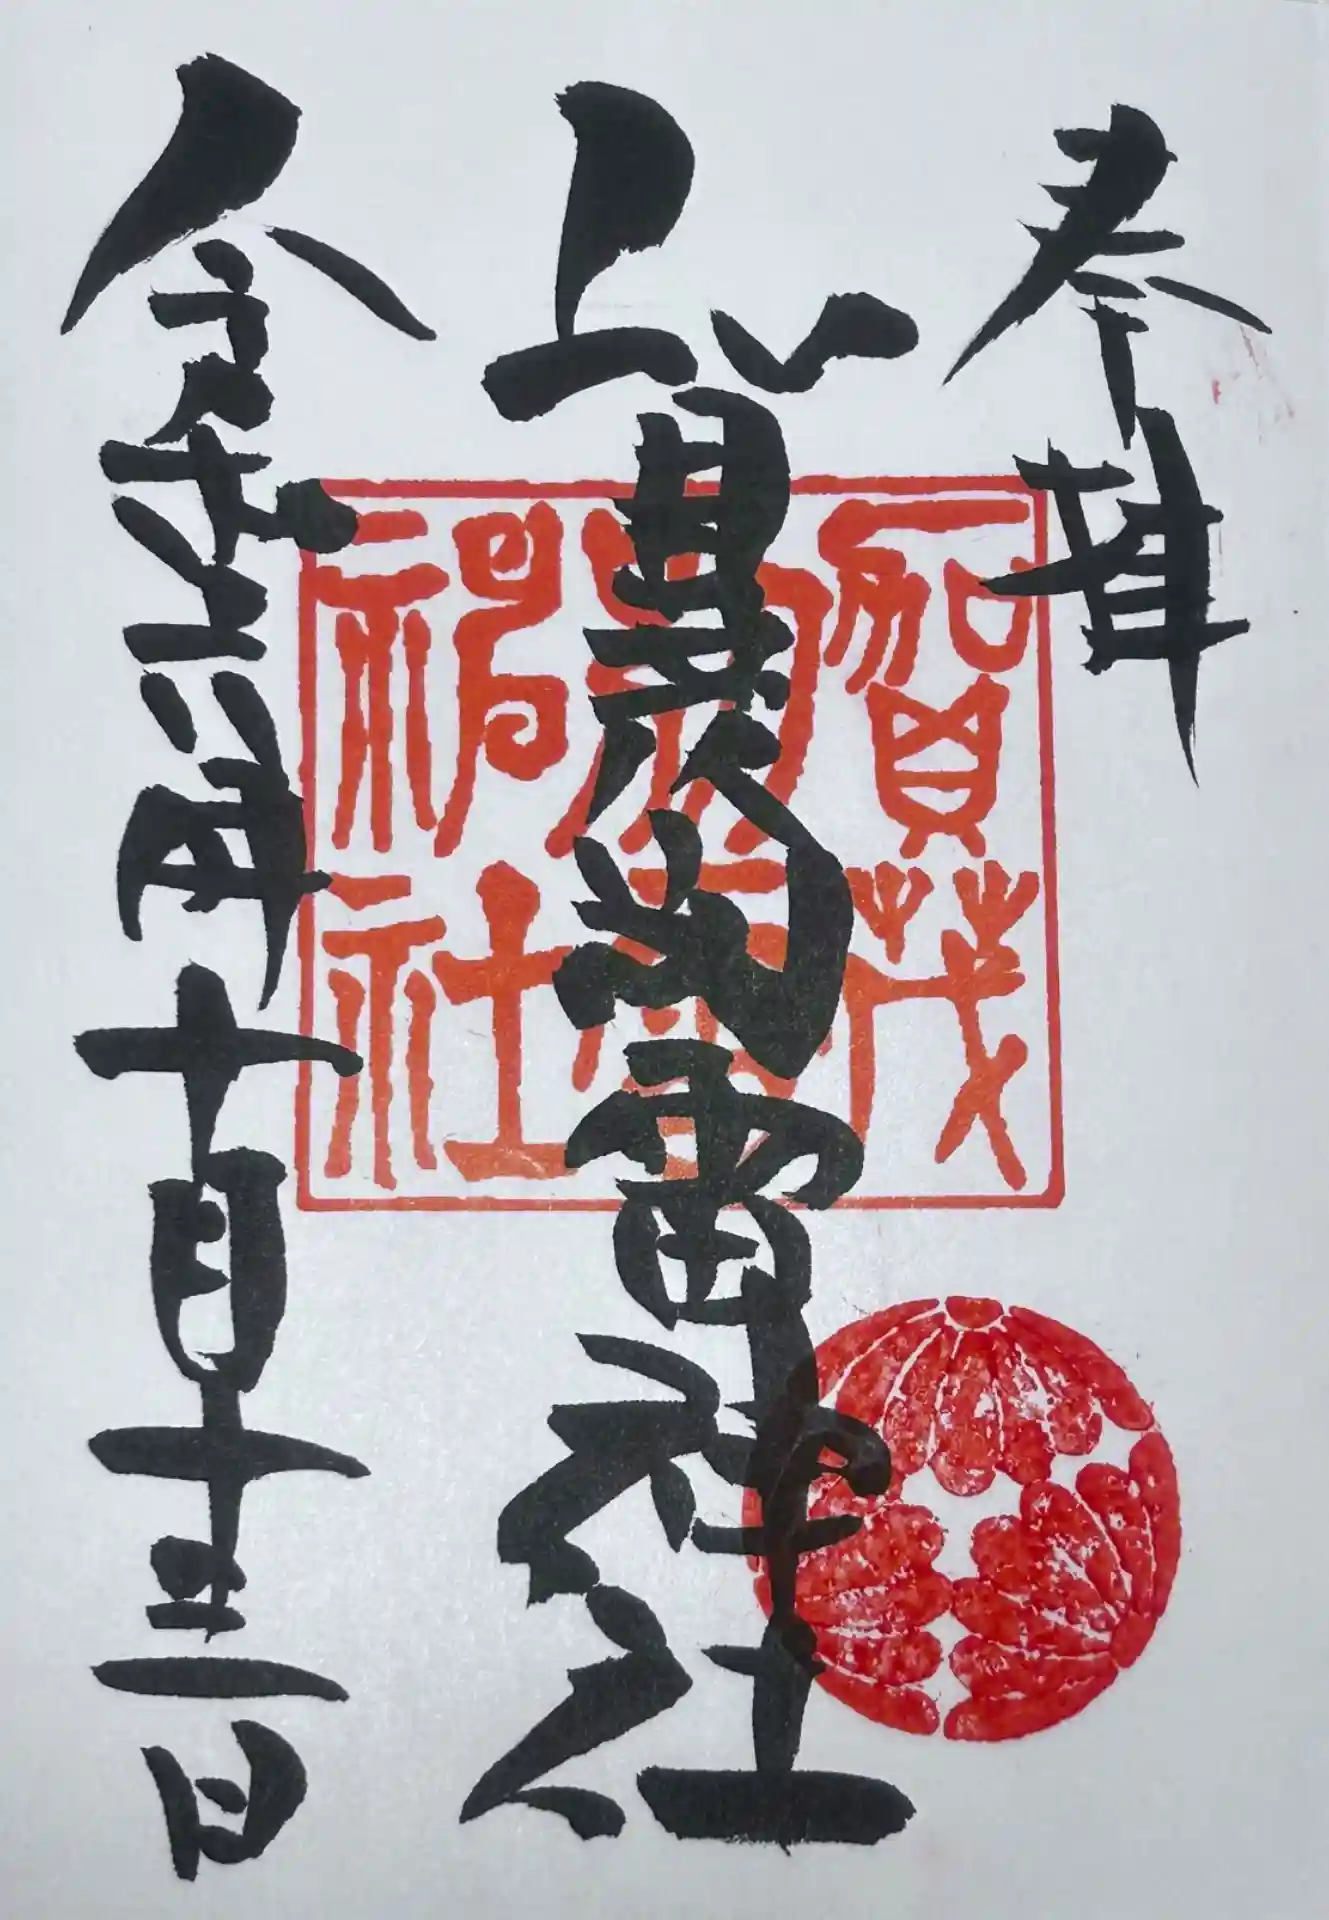 奉拝
賀茂別雷神社
令和六年十月十三日
賀茂
別雷
神社